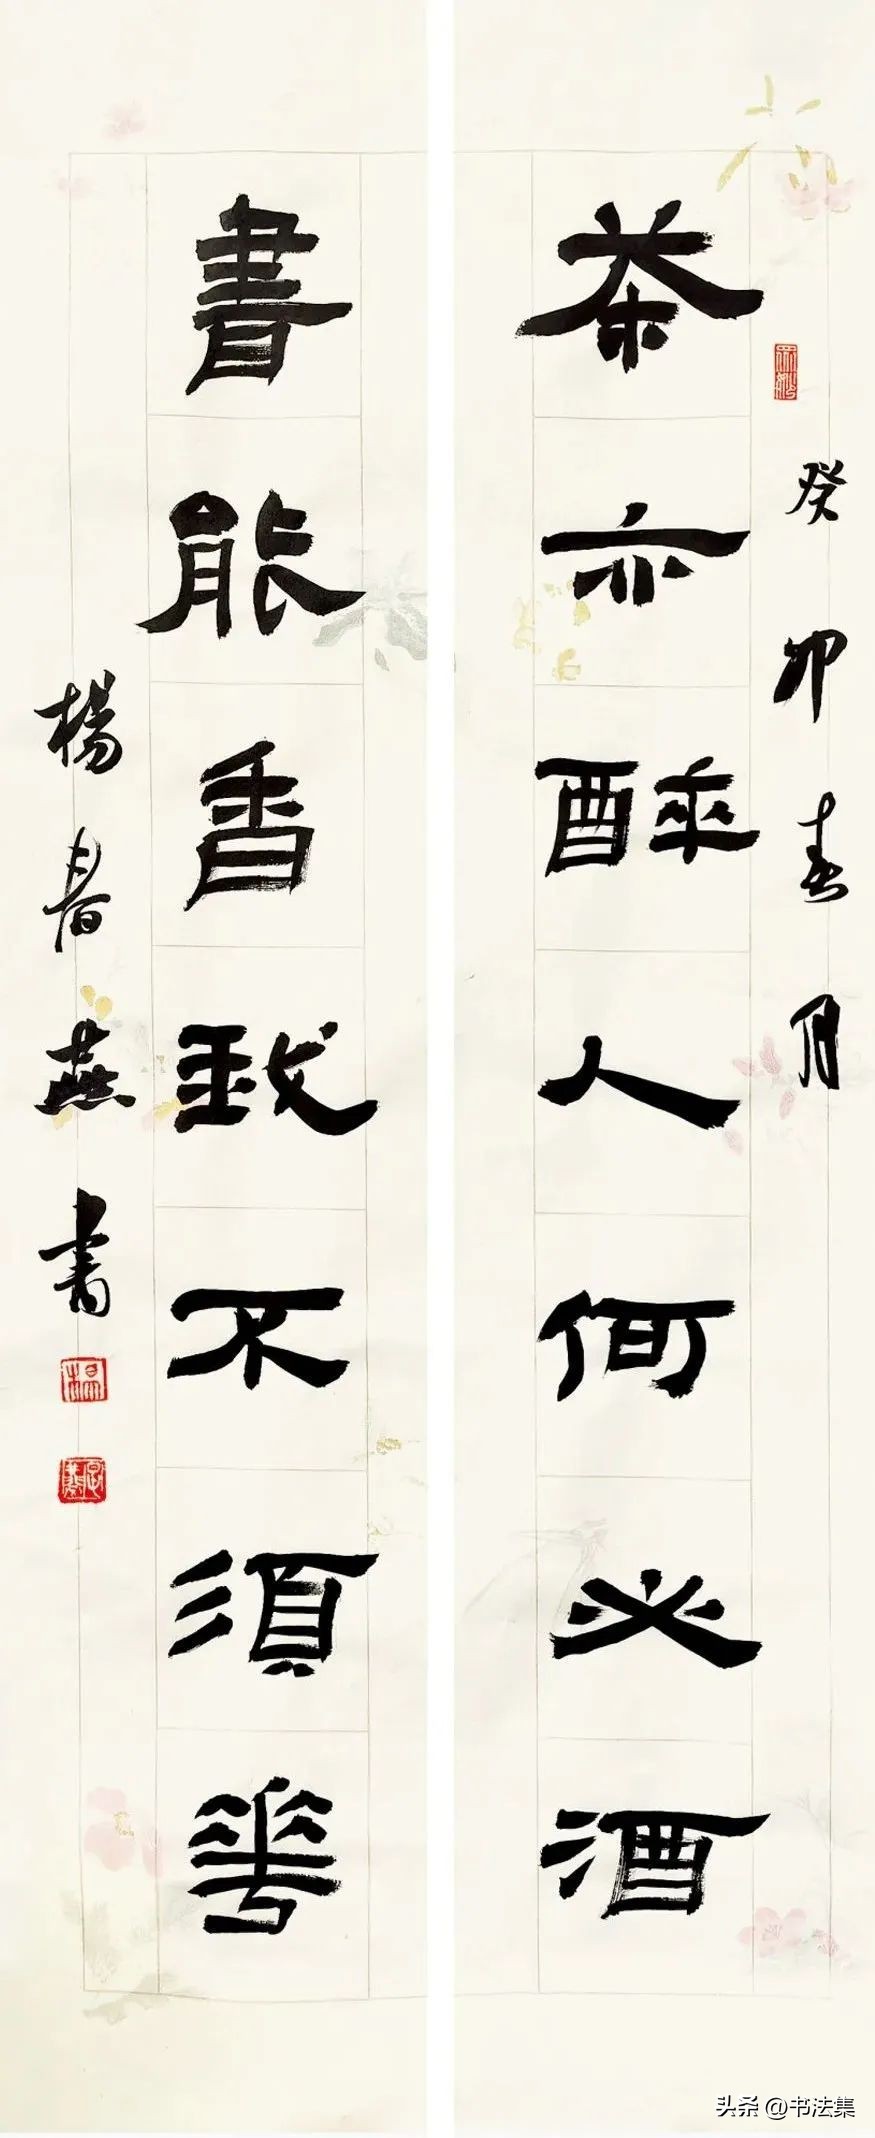 癸卯春月
茶亦醉人何必酒
書能香我不須花
楊春燕书
头条 @书法集